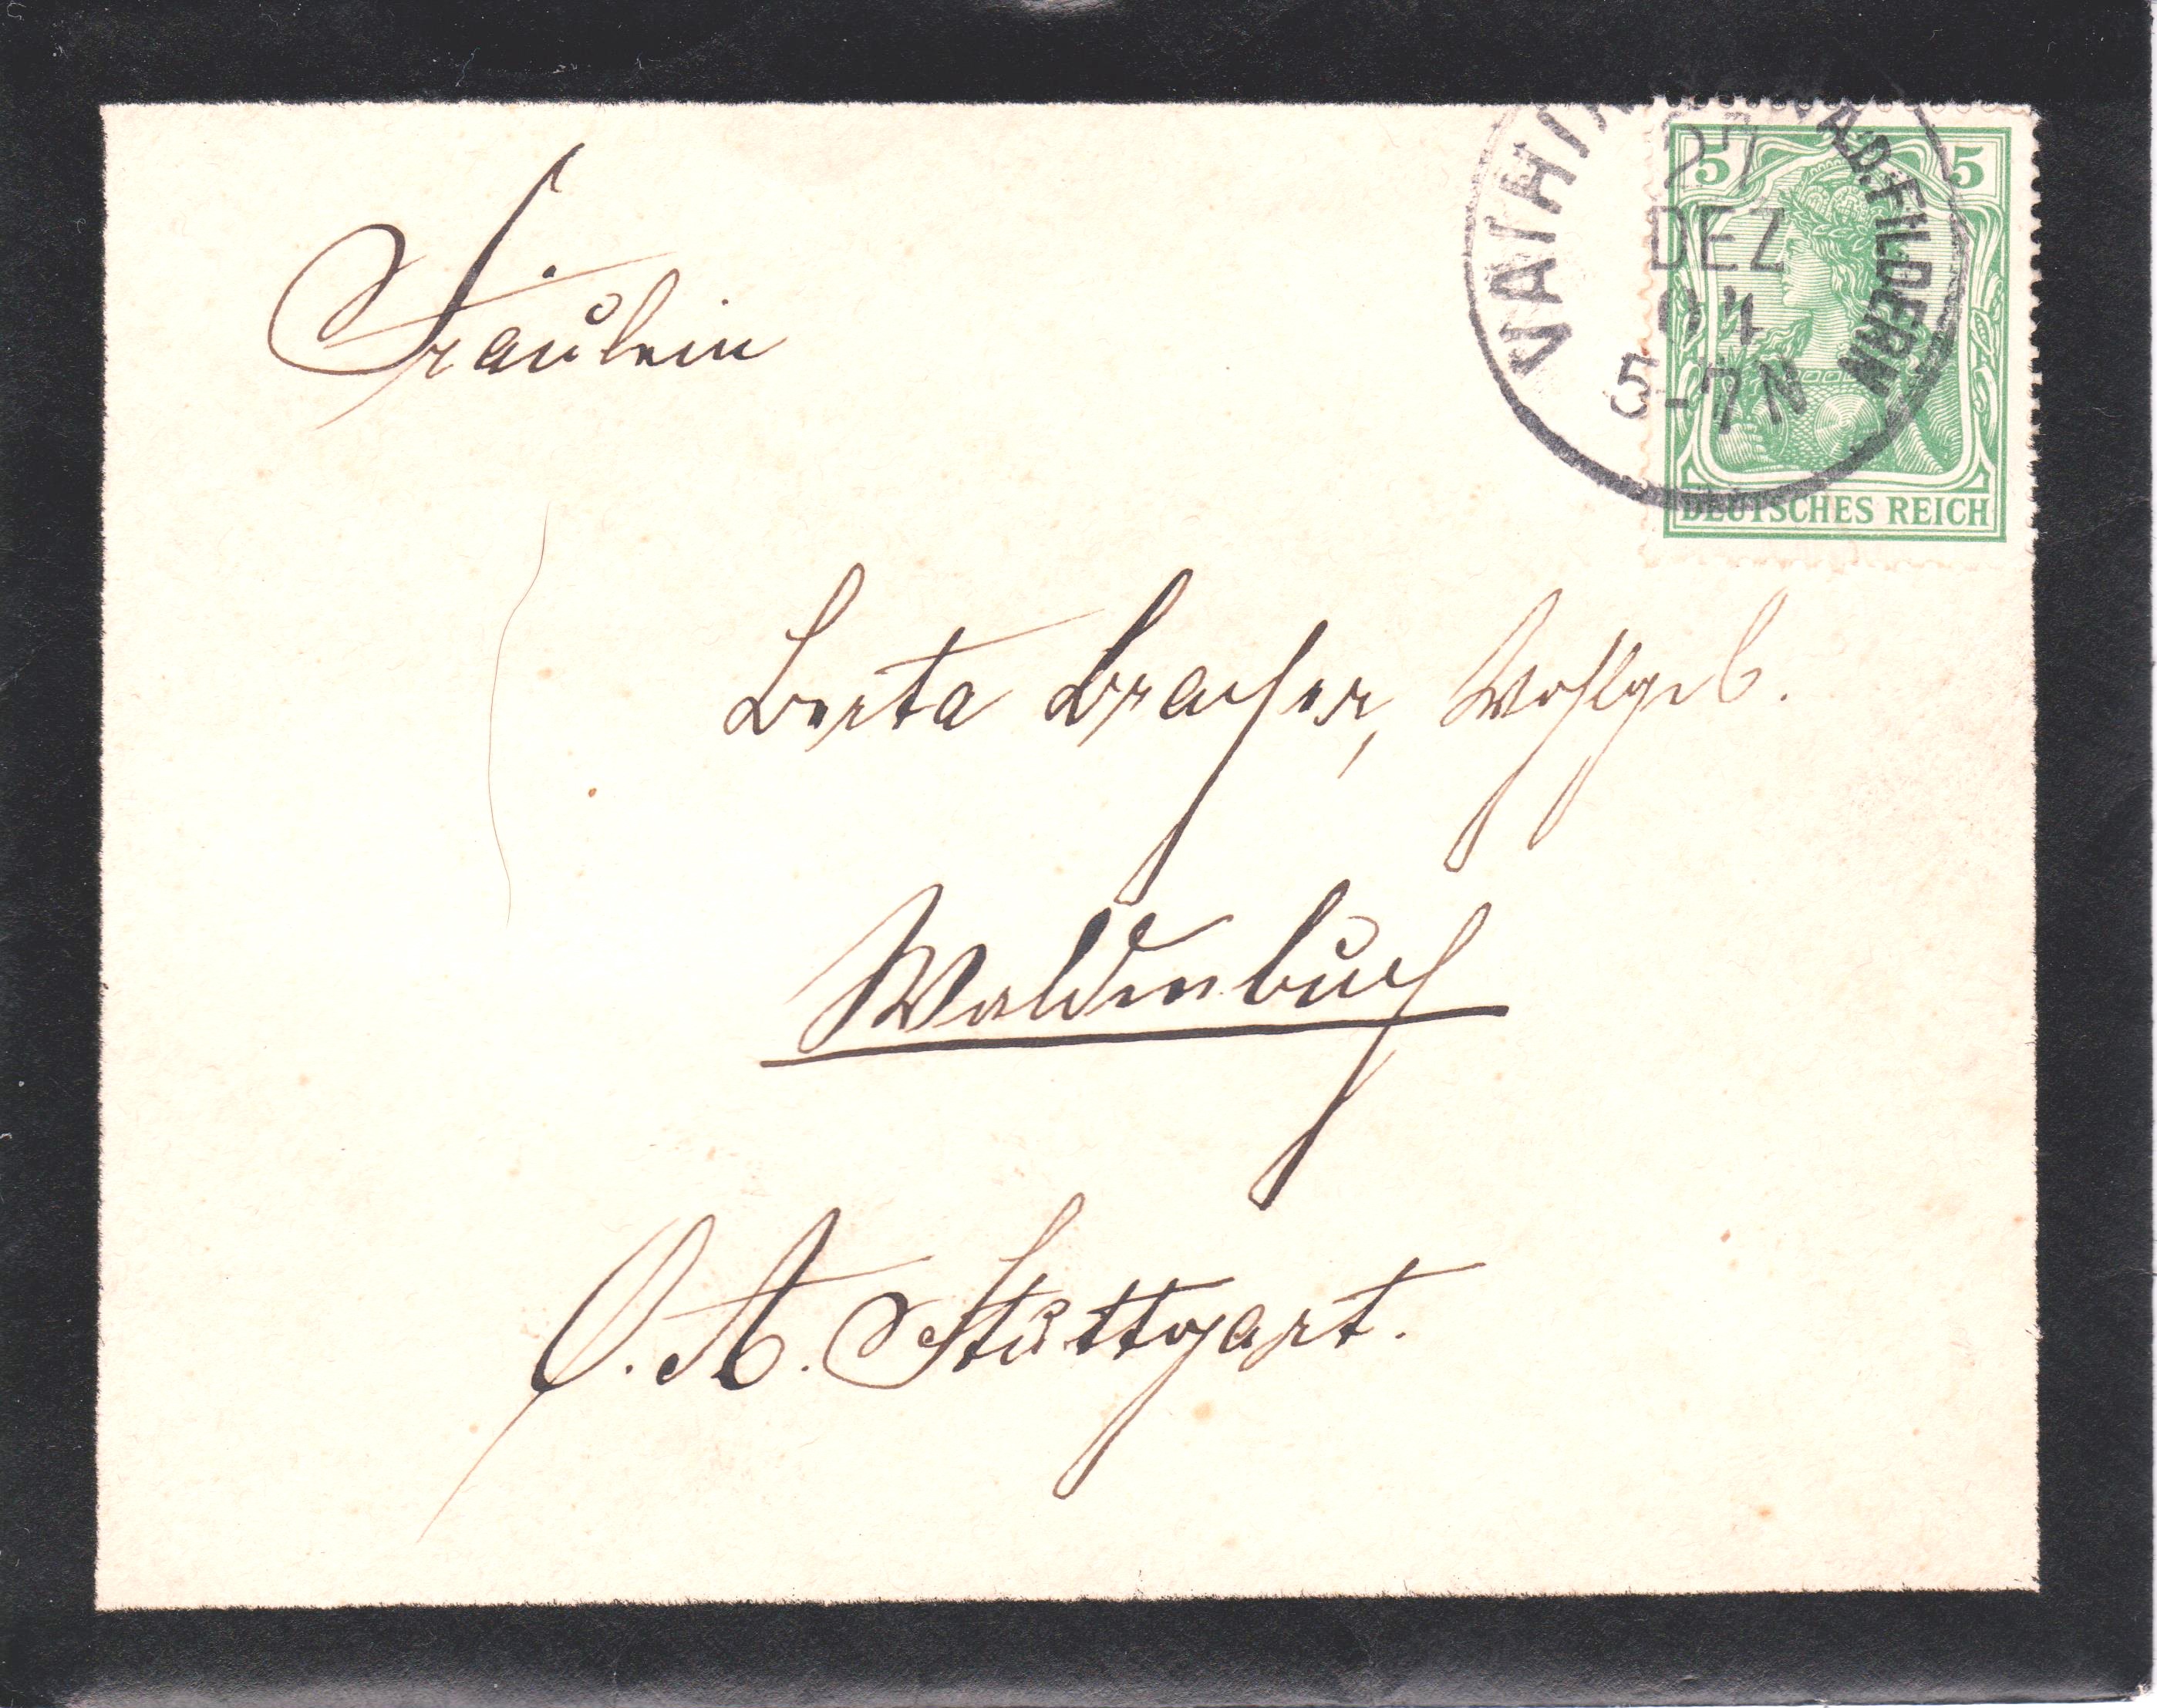 5 5
VAIHIN A.D. FILDERN
27
DEZ
04
5-7N
DEUTSCHES REICH
Fräulein
Berta Bracher, Wohlgeb.
Waldenbuch
O. A. Stuttgart.